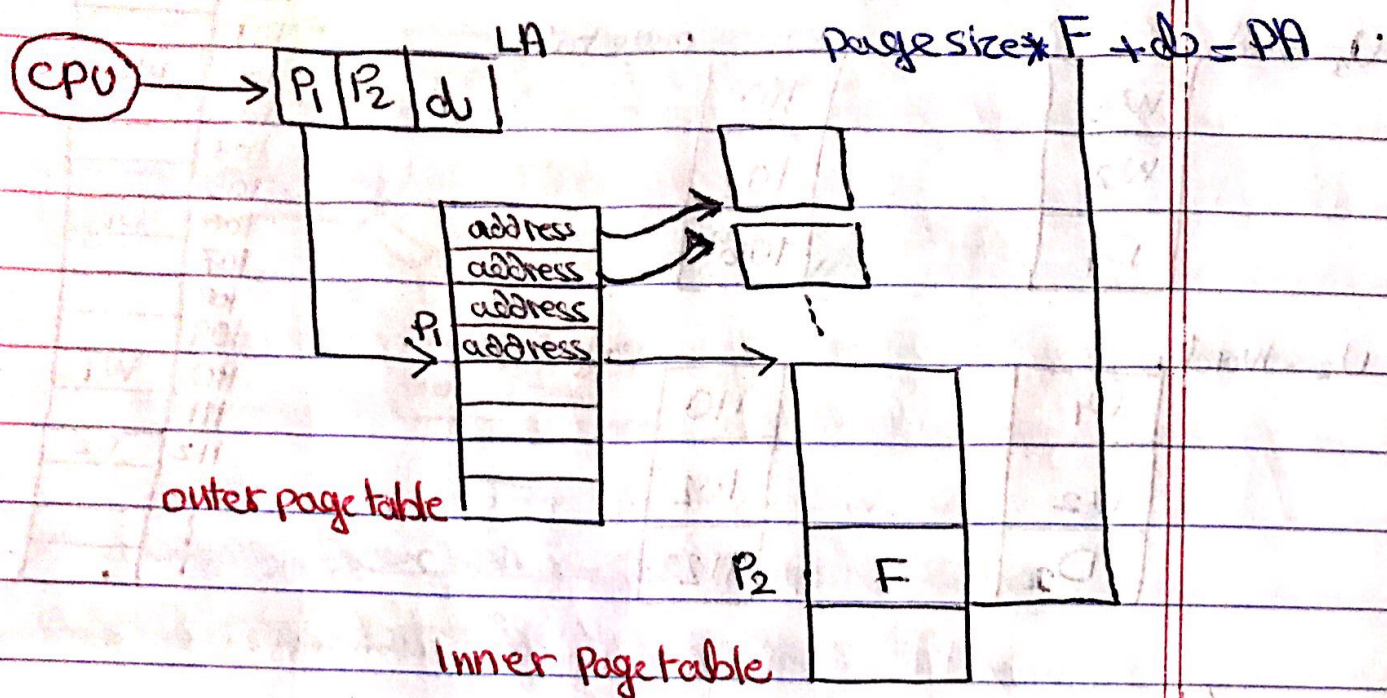 LA
pagesize* F + d = PA
CPU
P₁ P₂ d
address
address
address
P₁ address
outer page table
P₂ F
Inner page table